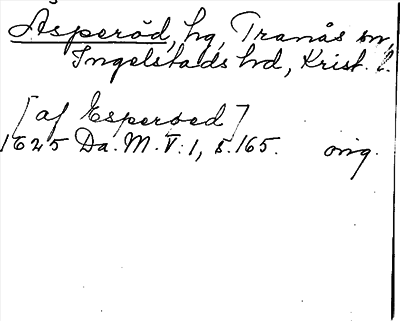 Äsperöd, hg, Tranås sn,
Ingelstads hd, Krist. l.
[af Esperoed]
1625 Da. M. V: 1, s. 165. orig.